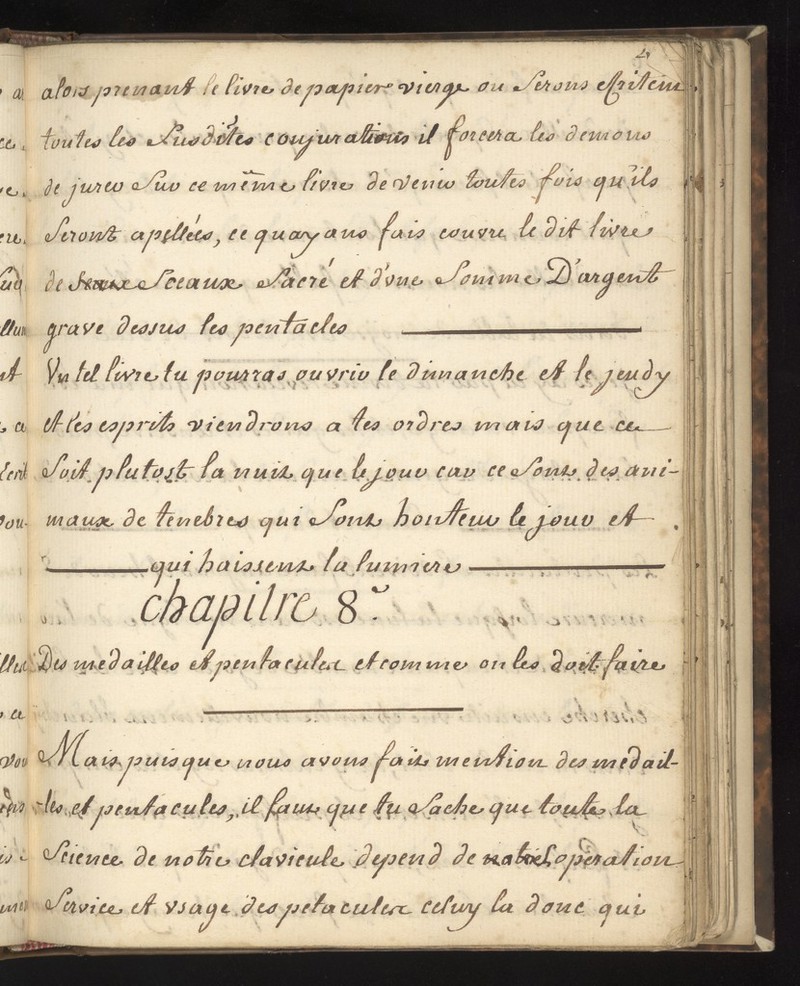 alors prenant le livre de papier vierge ou serons
toutes les susdites conjurations il forcera les demons
de jurer sur ce même livre de venir toutes fois qu'ils
seront apellées, ce quayans fais couvre le dit livre
de sceaux sacré et d'une somme D'argent
grave dessus les pentacles
Vn tel livre tu pourras ouvrir le dimanche et le jeudy
et les esprits viendrons a tes ordres mais que ce
soit plutost la nuit que le jour car ce sont des ani-
maux de tenebres qui sont honteur le jour et
qui haissent la lumiere
chapitre 8e.
Des medailles et pentacules et comme on les doit faire
Mais puisque nous avons fait mention des medail-
les et pentacules, il faut que tu sache que toute la
science de notre clavicule depend de l'operation
service et vsage des petacules celuy la donc qui